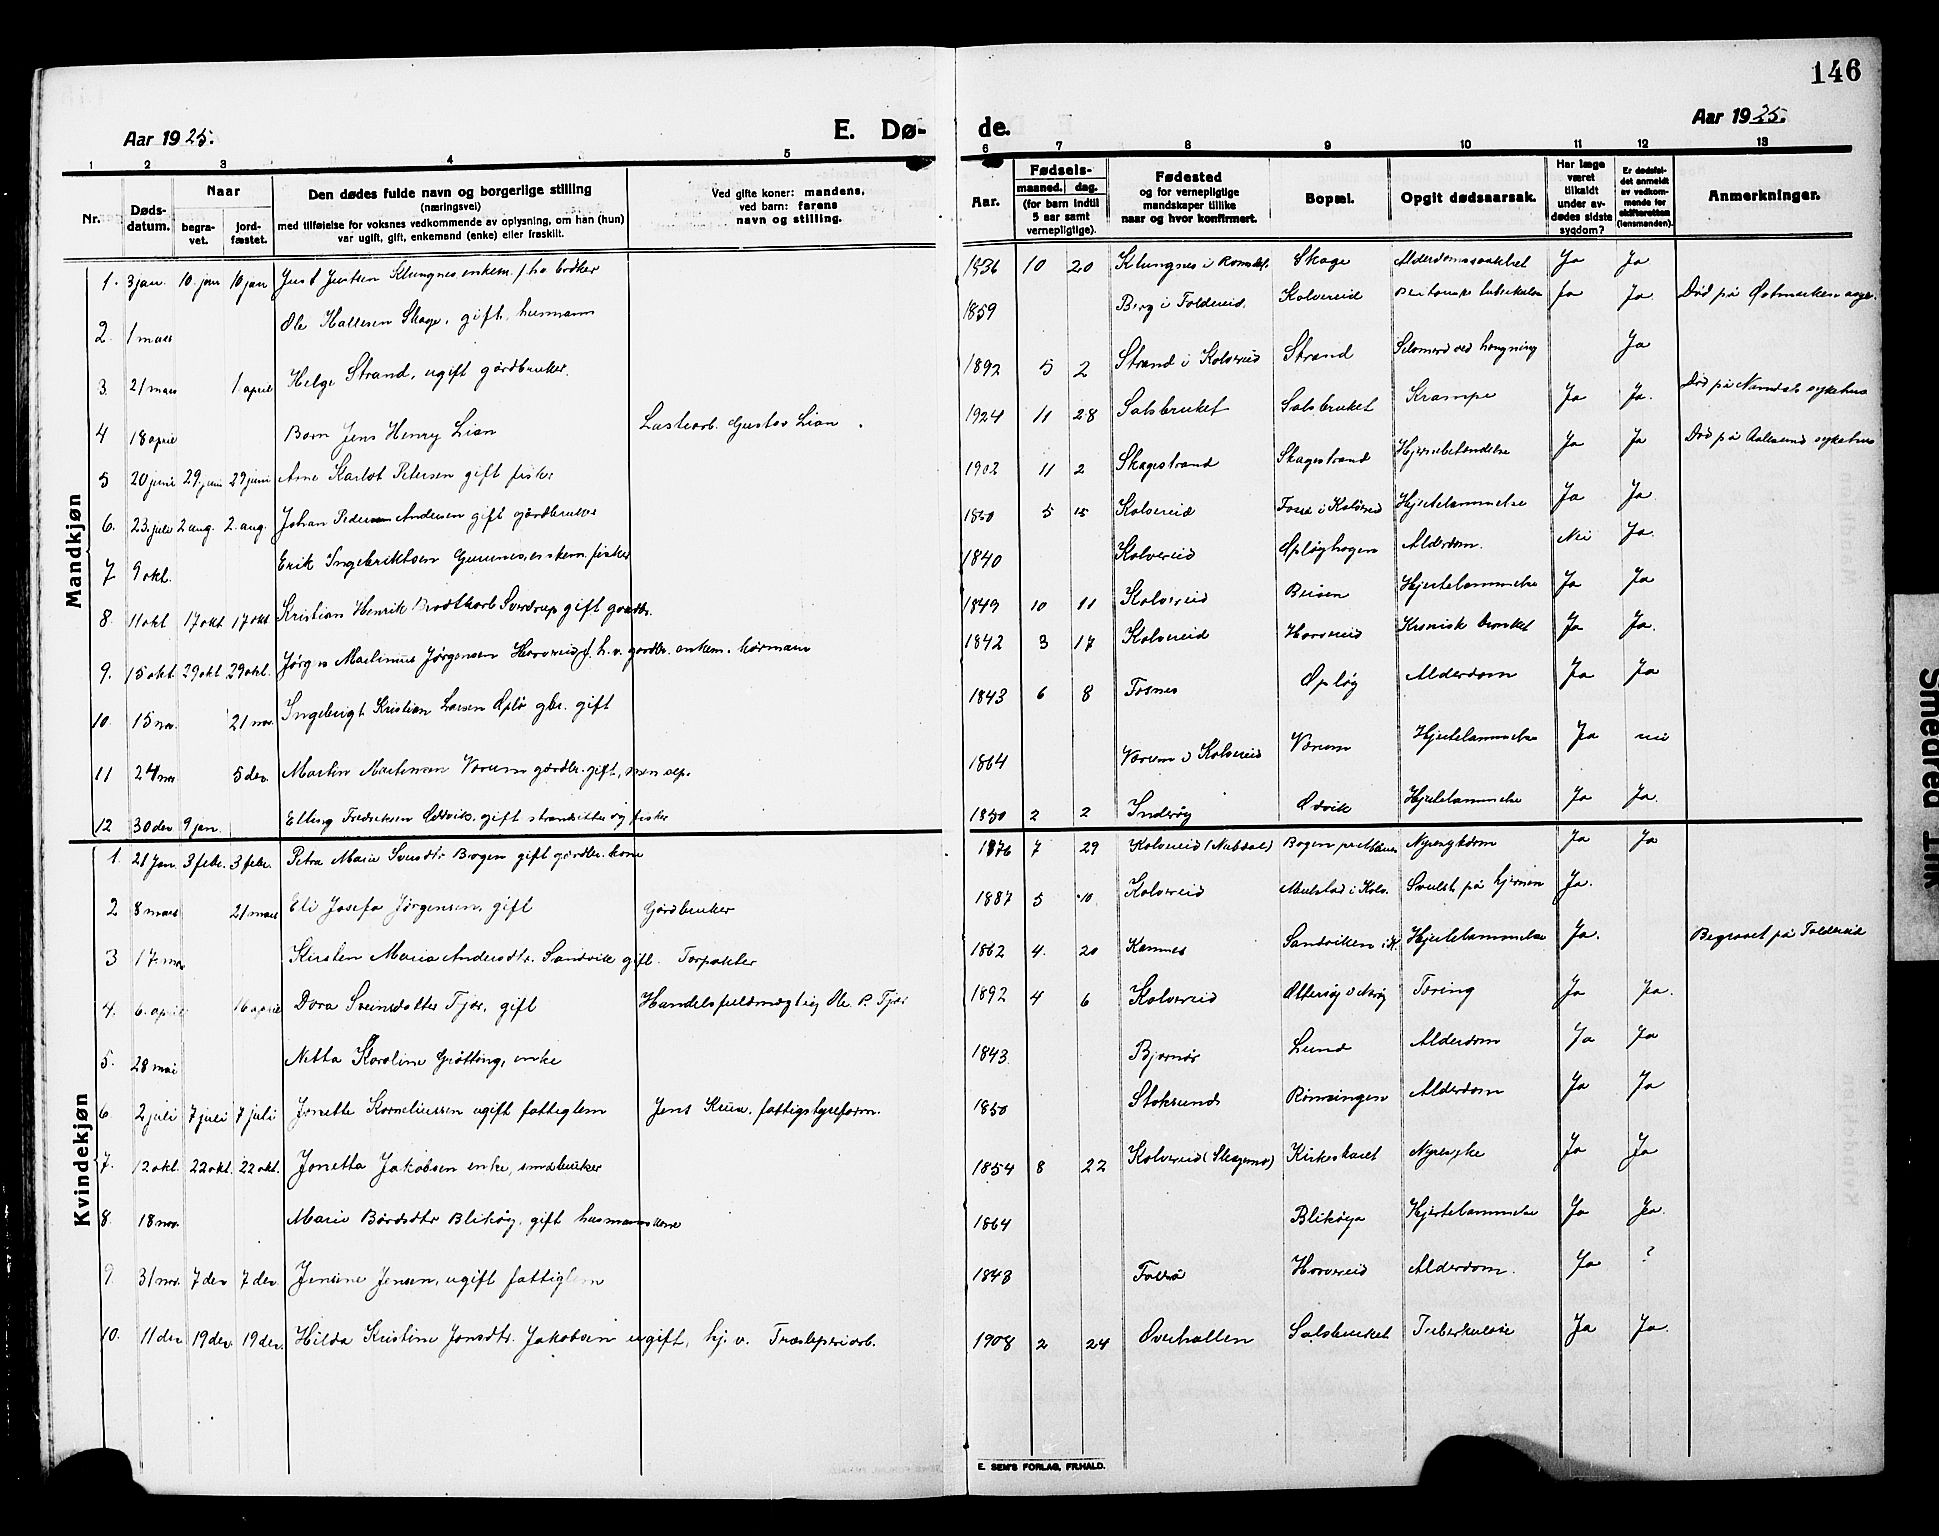 146
Aar 1925.
E. Dø-
de.
Aar 1925.
1 2 3 4 5
6 7 8 9 10 11 12 13
Nr. Døds-datum. Naar begra-vet. jord-fæstet. Den dødes fulde navn og borgerlige stilling (næringsvei) med tilføielse for voksnes vedkommende av oplysning, om han (hun) var ugift, gift, enkemand (enke) eller fraskilt. Ved gifte koner: mandens, ved barn: farens navn og stilling.
Aar. Fødsels- maaned. dag. (for barn indtil 5 aar samt vernepligtige). Fødested og for vernepligtige mandskaper tillike naar og hvor konfirmert. Bopæl. Opgit dødsaarsak. Har læge været tilkaldt under av-dødes sidste sygdom? Er dødsfal-det anmeldt av vedkom-mende for skifteretten (lensmanden). Anmerkninger.
Mandkjøn
1. 3 jan. 10. jan 10 jan Just Justsen Klungnes enkem. 1836 10 20 Klungnes i Skage Ja Ja
2. 1 mars Ole Hallesen Skage, gift, husmann 1859 Berg i Foldereid. Kolvereid Ja Ja. Død på
3. 21 mars 1 april Helge Strand, ugift gårdbruker. 1892 5 2 Strand i Kolvereid Strand Selvmord ved hengning Ja
4 18 april Barn Jens Henry Lian Gustav Lian 1924 11 28 Salsbruket Salsbruket Krampe Ja Ja. Død på Namdals sykehus
5 20 juni 29. juni 29 juni Arne Karlot Petersen gift fisker 1902 11 2 Skagestrand Skagestrand Hjernebetændelse Ja Ja Død på Aalesund sykehus
6. 23. juli 2 aug. 2. aug. Johan Pedersen Andersen gift gårdbruker 1850 5 15 Kolvereid i Kolvereid Hjertelammelse Ja Ja.
7 9 okt. Erik Ingebriktsen enkem. fisker 1840 Kolvereid Opløyhagen Alderdom. Nei Ja.
8. 11 okt 17 okt 17 okt Kristian Henrik Brodtkorb Sverdrup gift gårdbr. 1849 10 11 Kolvereid Hjertelammelse Ja Ja
9. 15 okt. 29 okt 29 okt. Martinus Jørgensen Horvereid f. h. v. gårdbr. enkem. kårmann 1842 3 17 Kolvereid Horvereid Kronisk bronkit Ja Ja.
10. 15 nov. 21 nov. Ingebrigt Kristian Larsen Oplø gbr. gift 1843 6 8 Fosnes Opløy Alderdom Ja Ja
11 24 nov 5 dev Martin Martinsen Varum gårdbr. gift, 1864 Varum i Kolvereid Varum Hjertelammelse Ja nei
12 30 dev 9 jan. Elling Fredriksen Oddvik. gift strandsitter og fisker 1850 2 2 Inderøy Odvik Hjertelammelse Ja Ja.
Kvindekjøn
1. 21 jan. 3 febr. 3 febr. Petra Marie Bogen gift gårdbr. kone 1876 7 29 Kolvereid Bogen Nyresykdom Ja Ja
2 8 mars 21 mars Eli Josefa Jørgensen, gift Gårdbruker 1887 5 10. Kolvereid i Kolv. Svulst på hjernen Ja.
3 17. mar Kirsten Maria Andersdtr. Sandvik gift. Forpakter 1862 4. 20 Sandviken i K. Hjertelammelse Ja. Begravet på Foldereid
4. 6. april 16 april Dora Sveinsdatter Tjær, gift Handelsfuldmægtig Ole P. Tjær 1892 4 6 Kolvereid Tæring Ja Ja.
5. 28 mai Netta Karoline Grøtting, enke 1843 Bjørnør Lund Alderdom Ja Ja
6 2 juli 7 juli 7 juli Jonette Korneliussen ugift fattiglem Jens fattigstyreform. 1850 Stoksund Rønningen Alderdom Ja Ja
7. 12 okt. 22 okt. 22 okt. Jonetta Jakobsen enke, småbruker 1854 8 22 Kolvereid Nyresyke Ja Ja
8. 18 nov. Marie Bårdsdtr Blikøy, gift husmannskone 1864 Blikøya Hjertelammelse Ja Ja.
9. 31 nov. 7 dev 7 dev. Jensine Jensen, ugift fattiglem 1843 Horvereid Alderdom. Ja ?
10. 11 dev 19 dev. 19 dev. Hilda Kristine Jonsdtr. Jakobsen ugift, hj. v. Træsliperiarb. 1908 2 24 Overhallen Salsbruket Tuberkulose Ja Ja.
E. SEM'S FORLAG, FR.HALD.
Smedred Trik